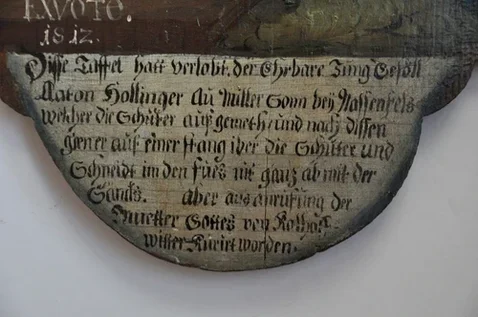 EXVOTO.
1812.
Disse Taffel hatt verlobt, der Ehrbare Jung Gesöll
Anton Hollinger Au Miller Sonn bey Nassenfels
welcher die Schüter auf gemeth, und nach dissen
giener auf einer stang iber die Schüter und
Schneidt im den fues nit ganz ab mit der
Sants. aber aus anrufung der
Muetter Gottes von
wither Kurirt worden.